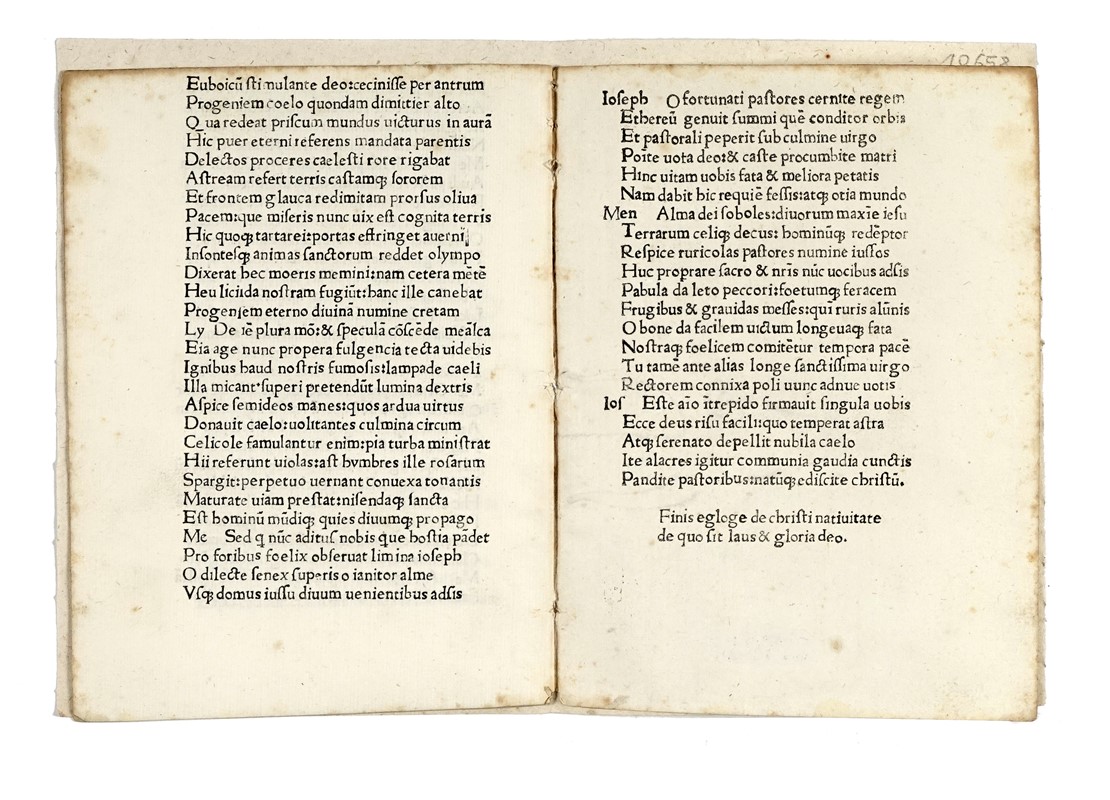 10658
Euboicū ſtimulante deo:ceciniſſe per antrum
Progeniem coelo quondam dimittier alto
Qua redeat priſcum mundus uicturus in aurā
Hic puer eterni referens mandata parentis
Delectos proceres caeleſti rore rigabat
Aſtream refert terris caſtamqꝫ ſororem
Et frontem glauca redimitam prorſus oliua
Pacem:que miſeris nunc uix eſt cognita terris
Hic quoqꝫ tartarei:portas eſtringet auerni
Inſonteſqꝫ animas ſanctorum reddet olympo
Dixerat hec moeris memini:nam cetera mētē
Heu licida noſtram fugiūt:hanc ille canebat
Progeniem eterno diuinā numine cretam
Ly De iē plura mō:& ſpeculā cōſcēde meāſca
Eia age nunc propera fulgencia tecta uidebis
Ignibus haud noſtris fumoſis:lampade caeli
Illa micant:ſuperi pretendūt lumina dextris
Aſpice ſemideos manes:quos ardua uirtus
Donauit caelo:uolitantes culmina circum
Celicole famulantur enim:pia turba miniſtrat
Hii referunt uiolas:aſt hvmbres ille roſarum
Spargit:perpetuo uernant conuexa tonantis
Maturate uiam preſtat:niſendaqꝫ ſancta
Eſt hominū mūdiqꝫ quies diuumqꝫ propago
Me Sed q nūc adituſ nobis que hoſtia pādet
Pro foribus foelix obſeruat limina ioſeph
O dilecte ſenex ſuperis o ianitor alme
Vſqꝫ domus iuſſu diuum uenientibus adſis
Ioſeph O fortunati paſtores cernite regem
Ethereū genuit ſummi quē conditor orbis
Et paſtorali peperit ſub culmine uirgo
Poīte uota deo:& caſte procumbite matri
Hinc uitam uobis fata & meliora petatis
Nam dabit hic requiē feſſis:atqꝫ otia mundo
Men Alma dei ſoboles:diuorum maxīe ieſu
Terrarum celiqꝫ decus: hominūqꝫ redēptor
Reſpice ruricolas paſtores numine iuſſos
Huc proprare ſacro & nrīs nūc uocibus adſis
Pabula da leto peccori:foetumqꝫ feracem
Frugibus & grauidas meſſes:qui ruris alūnis
O bone da facilem uictum longeuaqꝫ fata
Noſtraqꝫ foelicem comitētur tempora pacē
Tu tamē ante alias longe ſanctiſſima uirgo
Rectorem connixa poli uunc adnue uotis
Ioſ Eſte aīo ītrepido firmauit ſingula uobis
Ecce deus riſu facili:quo temperat aſtra
Atqꝫ ſerenato depellit nubila caelo
Ite alacres igitur communia gaudia cunctis
Pandite paſtoribus:natūqꝫ ediſcite chriſtū.
Finis egloge de chriſti natiuitate
de quo ſit laus & gloria deo.